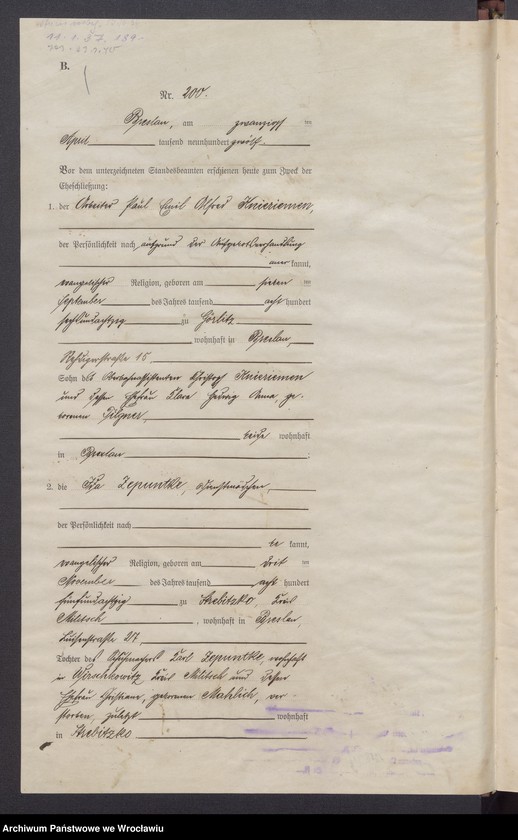 B.
Nr. 200.
Breslau, am zwanzigsten
April tausend neunhundert zwölf.
Vor dem unterzeichneten Standesbeamten erschienen heute zum Zweck der
Eheschließung:
1. der Arbeiter Paul Emil Alfred Knieriemen,
der Persönlichkeit nach aufgrund der Aufgebotsverhandlung
aner kannt,
evangelischer Religion, geboren am sieben ten
September des Jahres tausend acht hundert
sechsundachtzig zu Görlitz
, wohnhaft in Breslau,
15,
Sohn des Christoph Knieriemen
und dessen Ehefrau Klara Hedwig Anna, ge-
borenen Pilgner,
beide wohnhaft
in Breslau.
2. die Ida Zepuntke, Dienstmädchen,
der Persönlichkeit nach
be kannt,
evangelischer Religion, geboren am drit ten
November des Jahres tausend acht hundert
fünfundachtzig zu Strebitzko, Kreis
Militsch, wohnhaft in Breslau,
27,
Tochter des Schuhmachers Karl Zepuntke, wohnhaft
in Wirschkowitz Kreis Militsch und dessen
Ehefrau Christiane, geborenen Mahlich, ver-
storben, zuletzt wohnhaft
in Strebitzko
Archiwum Państwowe we Wrocławiu